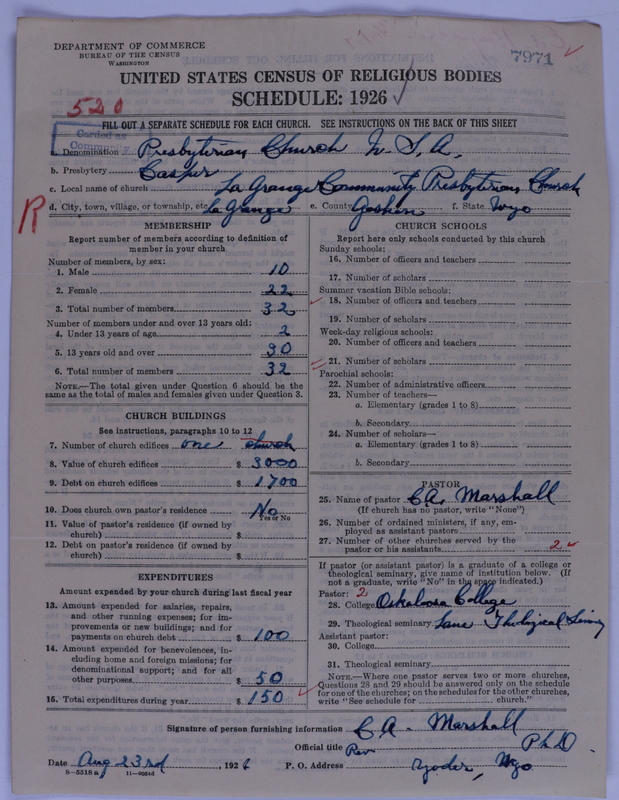 DEPARTMENT OF COMMERCE
BUREAU OF THE CENSUS
WASHINGTON
7971
UNITED STATES CENSUS OF RELIGIOUS BODIES
SCHEDULE: 1926
520
FILL OUT A SEPARATE SCHEDULE FOR EACH CHURCH. SEE INSTRUCTIONS ON THE BACK OF THIS SHEET
Carded as
Community
a. Denomination Presbyterian Church U. S. A.
b. Presbytery Casper
c. Local name of church La Grange Community Presbyterian Church
R
d. City, town, village, or township, etc. La Grange e. County Goshen f. State Wyo
MEMBERSHIP
Report number of members according to definition of
member in your church
Number of members, by sex:
1. Male 10
2. Female 22
3. Total number of members 32
Number of members under and over 13 years old:
4. Under 13 years of age 2
5. 13 years old and over 30
6. Total number of members 32
NOTE.—The total given under Question 6 should be the
same as the total of males and females given under Question 3.
CHURCH BUILDINGS
See instructions, paragraphs 10 to 12
7. Number of church edifices one church
8. Value of church edifices $ 3000
9. Debt on church edifices $ 1700
10. Does church own pastor's residence No
Yes or No
11. Value of pastor's residence (if owned by
church) $
12. Debt on pastor's residence (if owned by
church) $
EXPENDITURES
Amount expended by your church during last fiscal year
13. Amount expended for salaries, repairs,
and other running expenses; for im-
provements or new buildings; and for
payments on church debt $ 100
14. Amount expended for benevolences, in-
cluding home and foreign missions; for
denominational support; and for all
other purposes $ 50
15. Total expenditures during year $ 150
CHURCH SCHOOLS
Report here only schools conducted by this church
Sunday schools:
16. Number of officers and teachers
17. Number of scholars
Summer vacation Bible schools:
18. Number of officers and teachers
19. Number of scholars
Week-day religious schools:
20. Number of officers and teachers
21. Number of scholars
Parochial schools:
22. Number of administrative officers
23. Number of teachers—
a. Elementary (grades 1 to 8)
b. Secondary
24. Number of scholars—
a. Elementary (grades 1 to 8)
b. Secondary
PASTOR
25. Name of pastor C. A. Marshall
(If church has no pastor, write "None")
26. Number of ordained ministers, if any, em-
ployed as assistant pastors
27. Number of other churches served by the
pastor or his assistants 2
If pastor (or assistant pastor) is a graduate of a college or
theological seminary, give name of institution below. (If
not a graduate, write "No" in the space indicated.)
Pastor: 2
28. College Oskaloosa College
29. Theological seminary Lane Theological Seminary
Assistant pastor:
30. College
31. Theological seminary
NOTE.—Where one pastor serves two or more churches,
Questions 28 and 29 should be answered only on the schedule
for one of the churches; on the schedules for the other churches,
write "See schedule for church."
Signature of person furnishing information C. A. Marshall
Official title Rev Ph D.
Date Aug 23rd, 1926 P. O. Address Yoder, Wyo
8-5518a